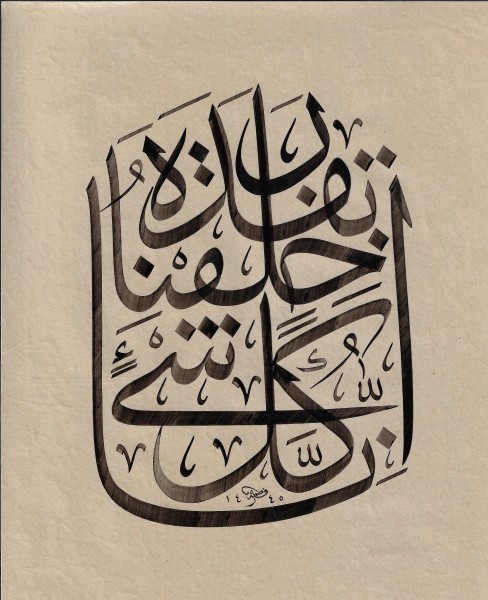 إِنَّا كُلَّ شَيْءٍ خَلَقْنَاهُ بِقَدَرٍ
١٤٤٥